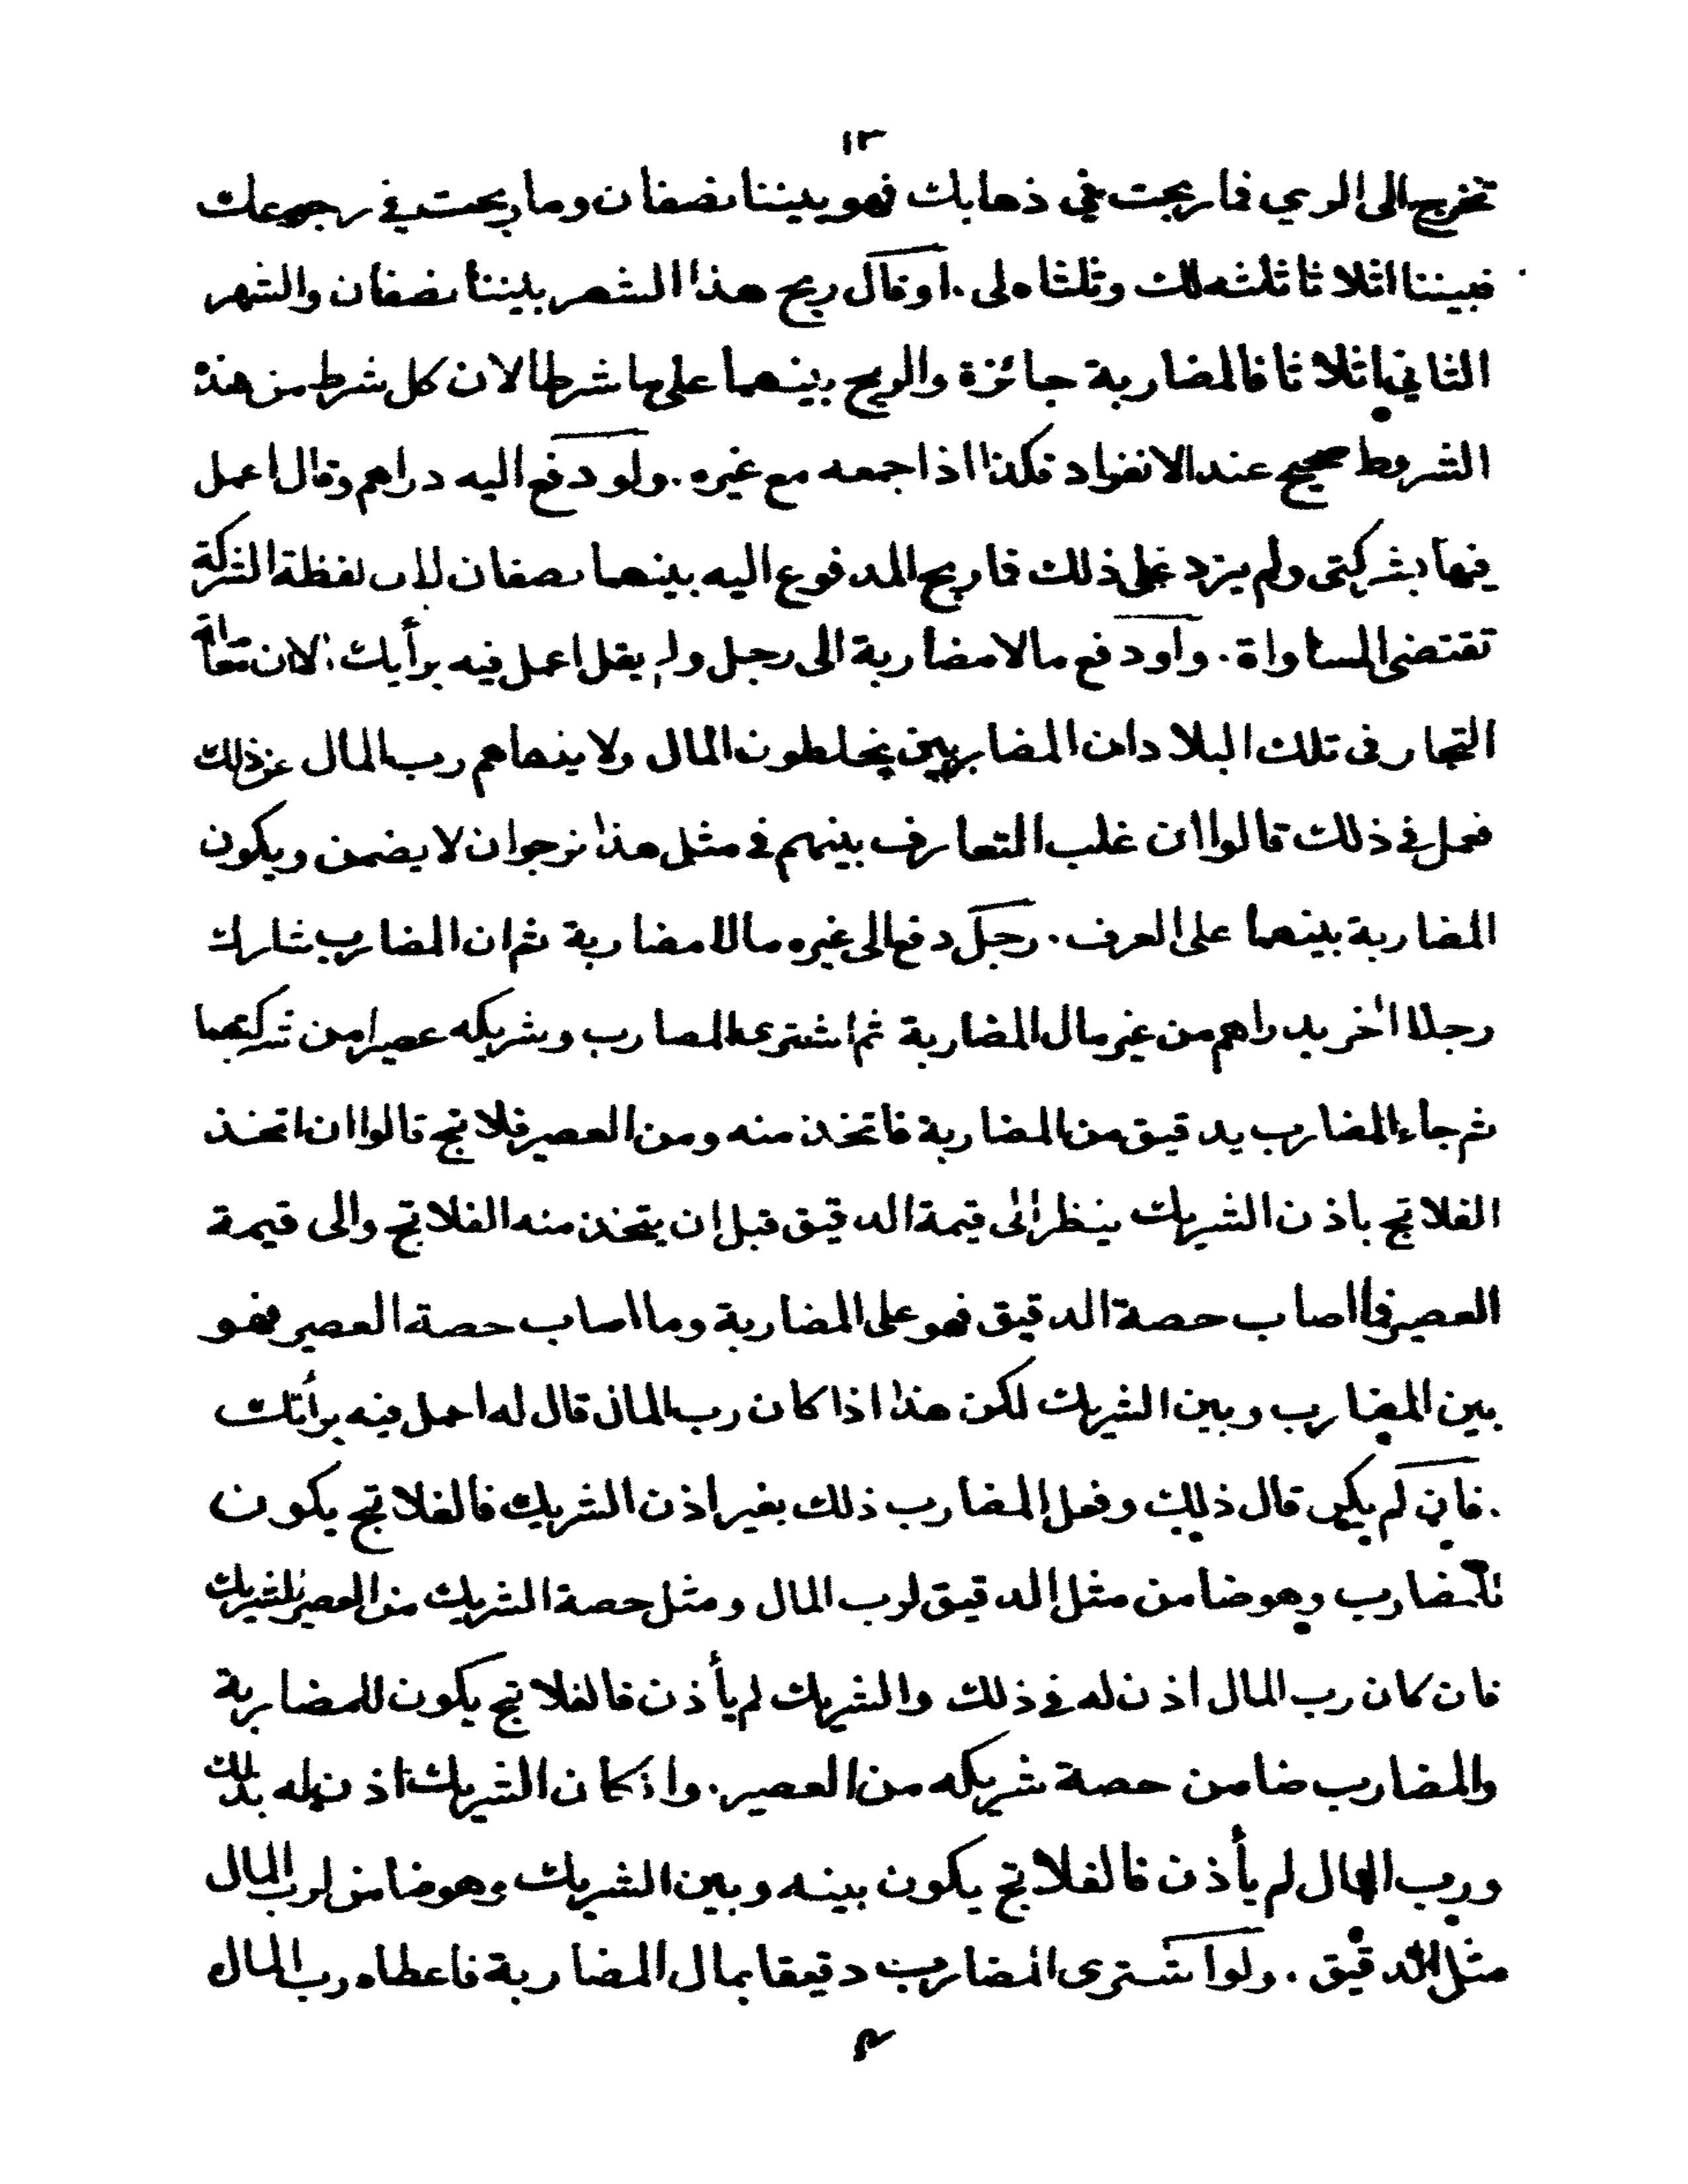 ١٣
تخرج الى الري فما ربحت في ذهابك فهو بيننا نصفان وما ربحت في رجوعك
فبيننا اثلاثا ثلثه لك وثلثاه لى . او قال ربح هذا الشهر بيننا نصفان والشهر
الثاني اثلاثا فالمضاربة جائزة والربح بينهما على ما شرطا لان كل شرط من هذه
الشروط صحيح عند الانفراد فكذا اذا جمعه مع غيره . ولو دفع اليه دراهم وقال اعمل
فيها بشركتى ولم يزد على ذلك فما ربح المدفوع اليه بينهما نصفان لان لفظة الشركة
تقتضى المساواة . ولو دفع مالا مضاربة الى رجل ولم يقل اعمل فيه برأيك الا ان
التجار فى تلك البلاد ان المضاربين يخلطون المال ولا ينهاهم رب المال عن ذلك
فعمل في ذلك قالوا ان غلب التعارف بينهم في مثل هذا نرجو ان لا يضمن ويكون
المضاربة بينهما على العرف . رجل دفع الى غيره مالا مضاربة ثم ان المضارب شارك
رجلا اخر بدراهم من غير مال المضاربة ثم اشترى المضارب وشريكه عصيرا من شركتهما
ثم جاء المضارب بدقيق من المضاربة فاتخذ منه ومن العصير فلاتج قالوا ان اتخذ
الفلاتج باذن الشريك ينظر الى قيمة الدقيق قبل ان يتخذ منه الفلاتج والى قيمة
العصير فما اصاب حصة الدقيق فهو على المضاربة وما اصاب حصة العصير فهو
بين المضارب وبين الشريك لكن هذا اذا كان رب المال قال له اعمل فيه برأيك
. فان لم يكن قال ذلك وفعل المضارب ذلك بغير اذن الشريك فالفلاتج يكون
للمضارب وهو ضامن مثل الدقيق لرب المال ومثل حصة الشريك من العصير للشريك
فان كان رب المال اذن له في ذلك والشريك لم يأذن فالفلاتج يكون للمضاربة
والمضارب ضامن حصة شريكه من العصير . وان كان الشريك اذن له بذلك
ورب المال لم يأذن فالفلاتج يكون بينه وبين الشريك وهو ضامن لرب المال
مثل الدقيق . ولو اشترى المضارب دقيقا بمال المضاربة فاعطاه رب المال